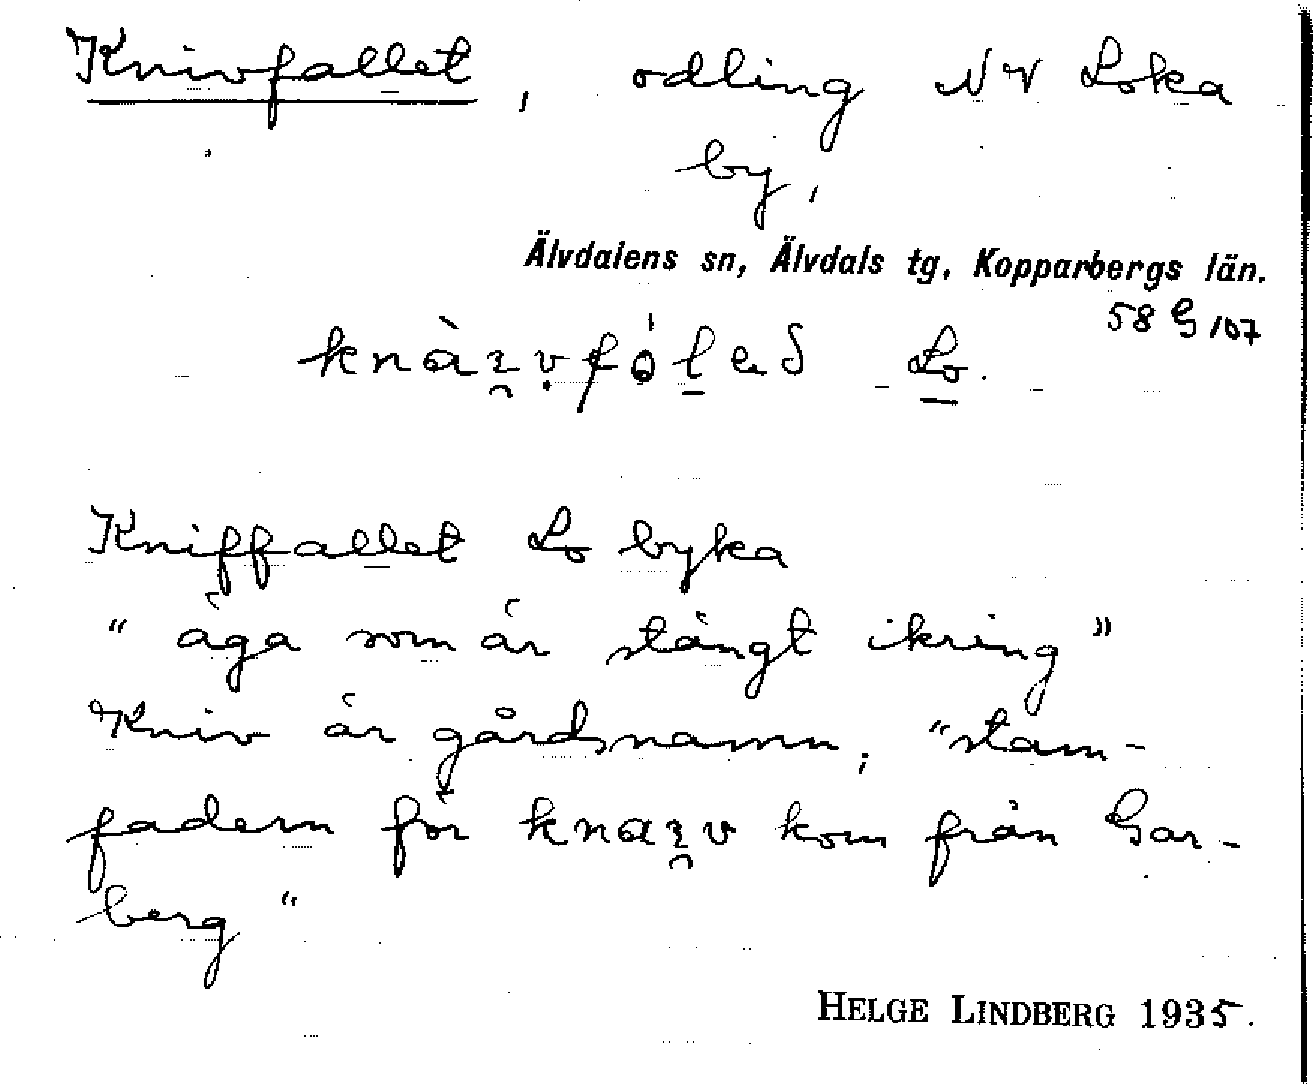 Knivfallet, odling NV Loka
by,
Älvdalens sn, Älvdals tg, Kopparbergs län.
58 G 107
Lo.
Kniffallet Lo byka
"äga som är stängt ikring"
Kniv är gårdsnamn, "stam-
fadern för knaıv kom från Gar-
berg"
HELGE LINDBERG 1935.